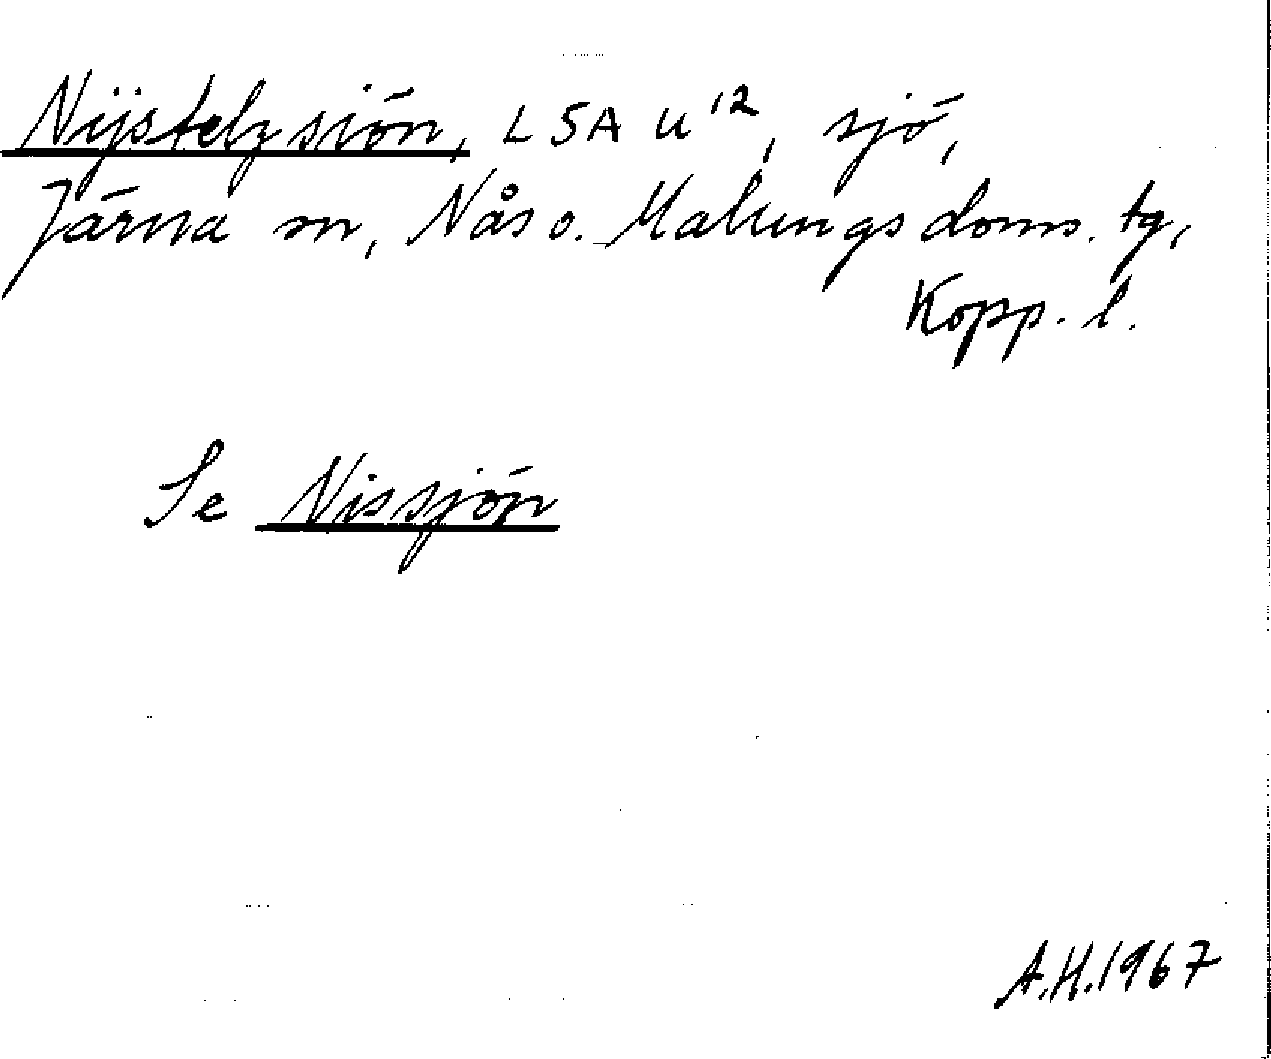 Nijstelz siön, LSA U¹², sjö,
Järna sn, Nås o. Malungs doms. tg,
Kopp. l.
Se Nissjön
A.H. 1967